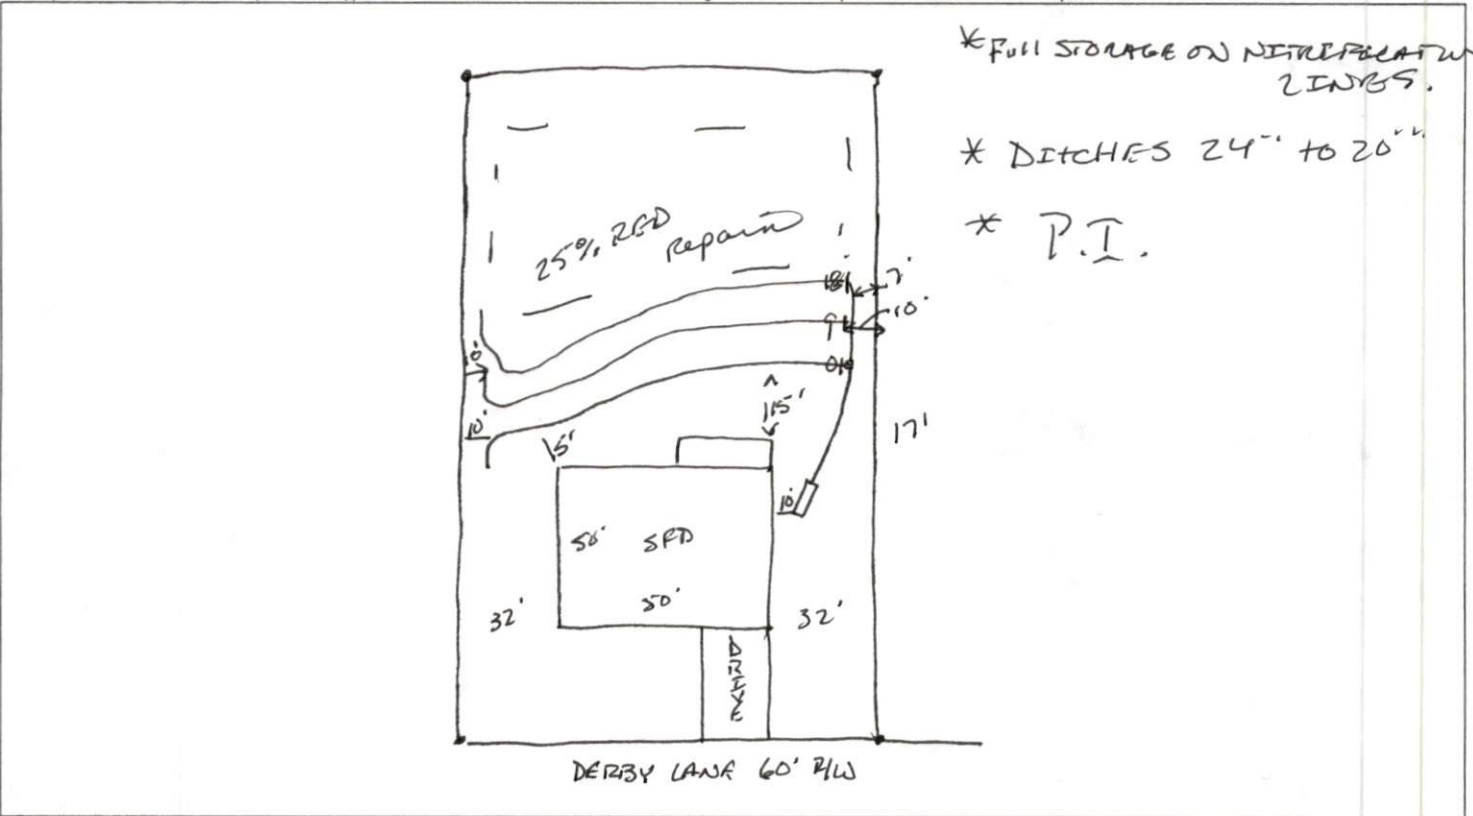 * Full STORAGE ON
LINES.
* DITCHES 24" to 20"
* P.I.
25% RED
Repair
18
7'
10'
9
0
10'
10'
15'
15'
17'
10'
50' SFD
50'
32'
32'
DRIVE
DERBY LANE 60' R/W